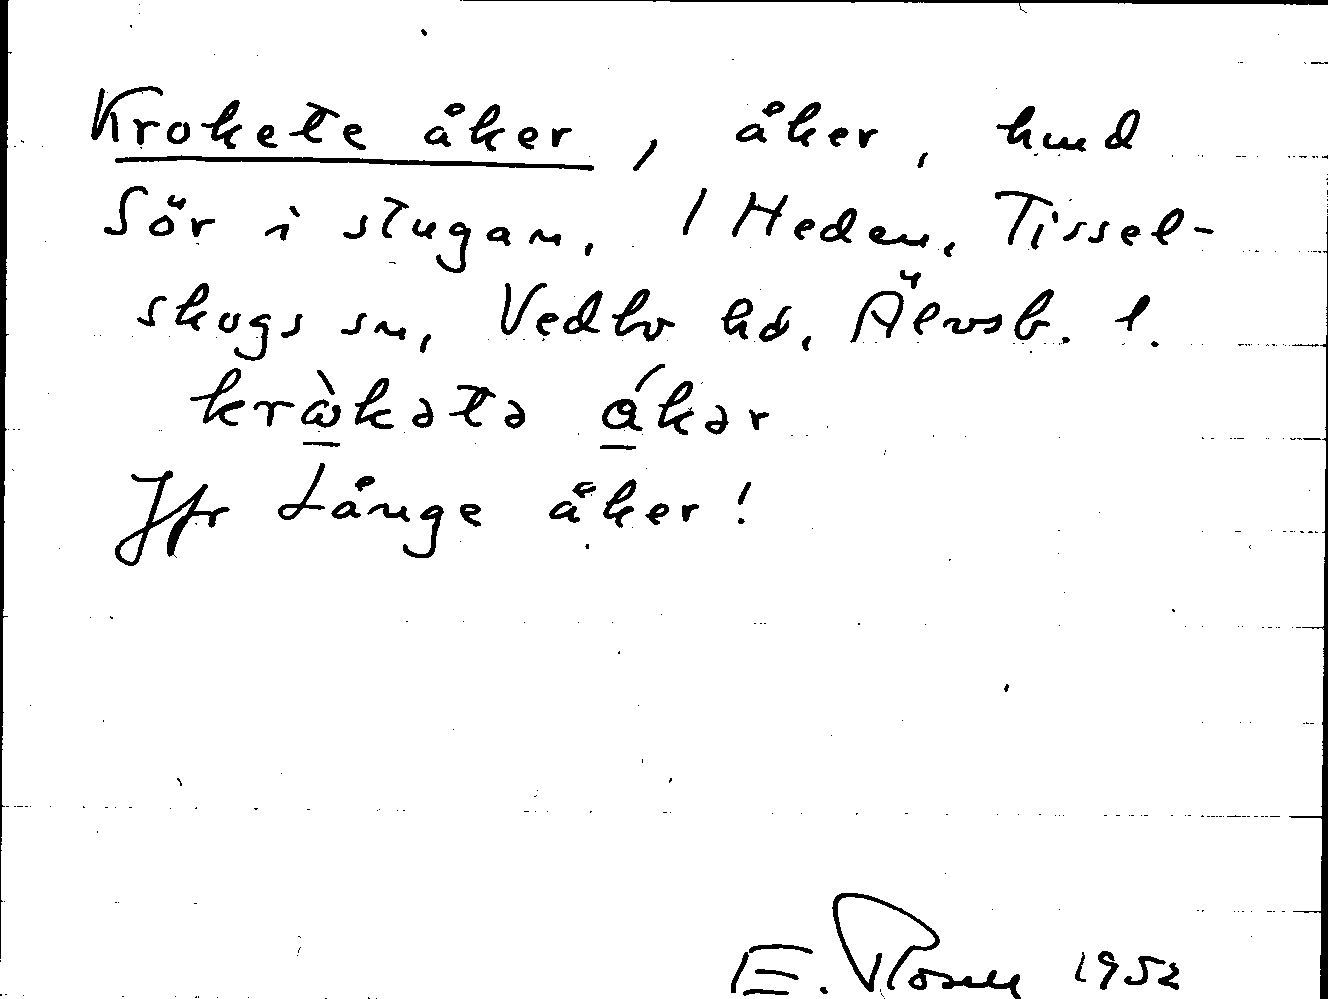 Krokete åker, åker, hmd
Sör i stugan, 1 Heden, Tissel-
skogs sn, Vedbo hd, Älvsb. l.
krὼkətə ákər
Jfr Långe åker!
E. Rosell 1952